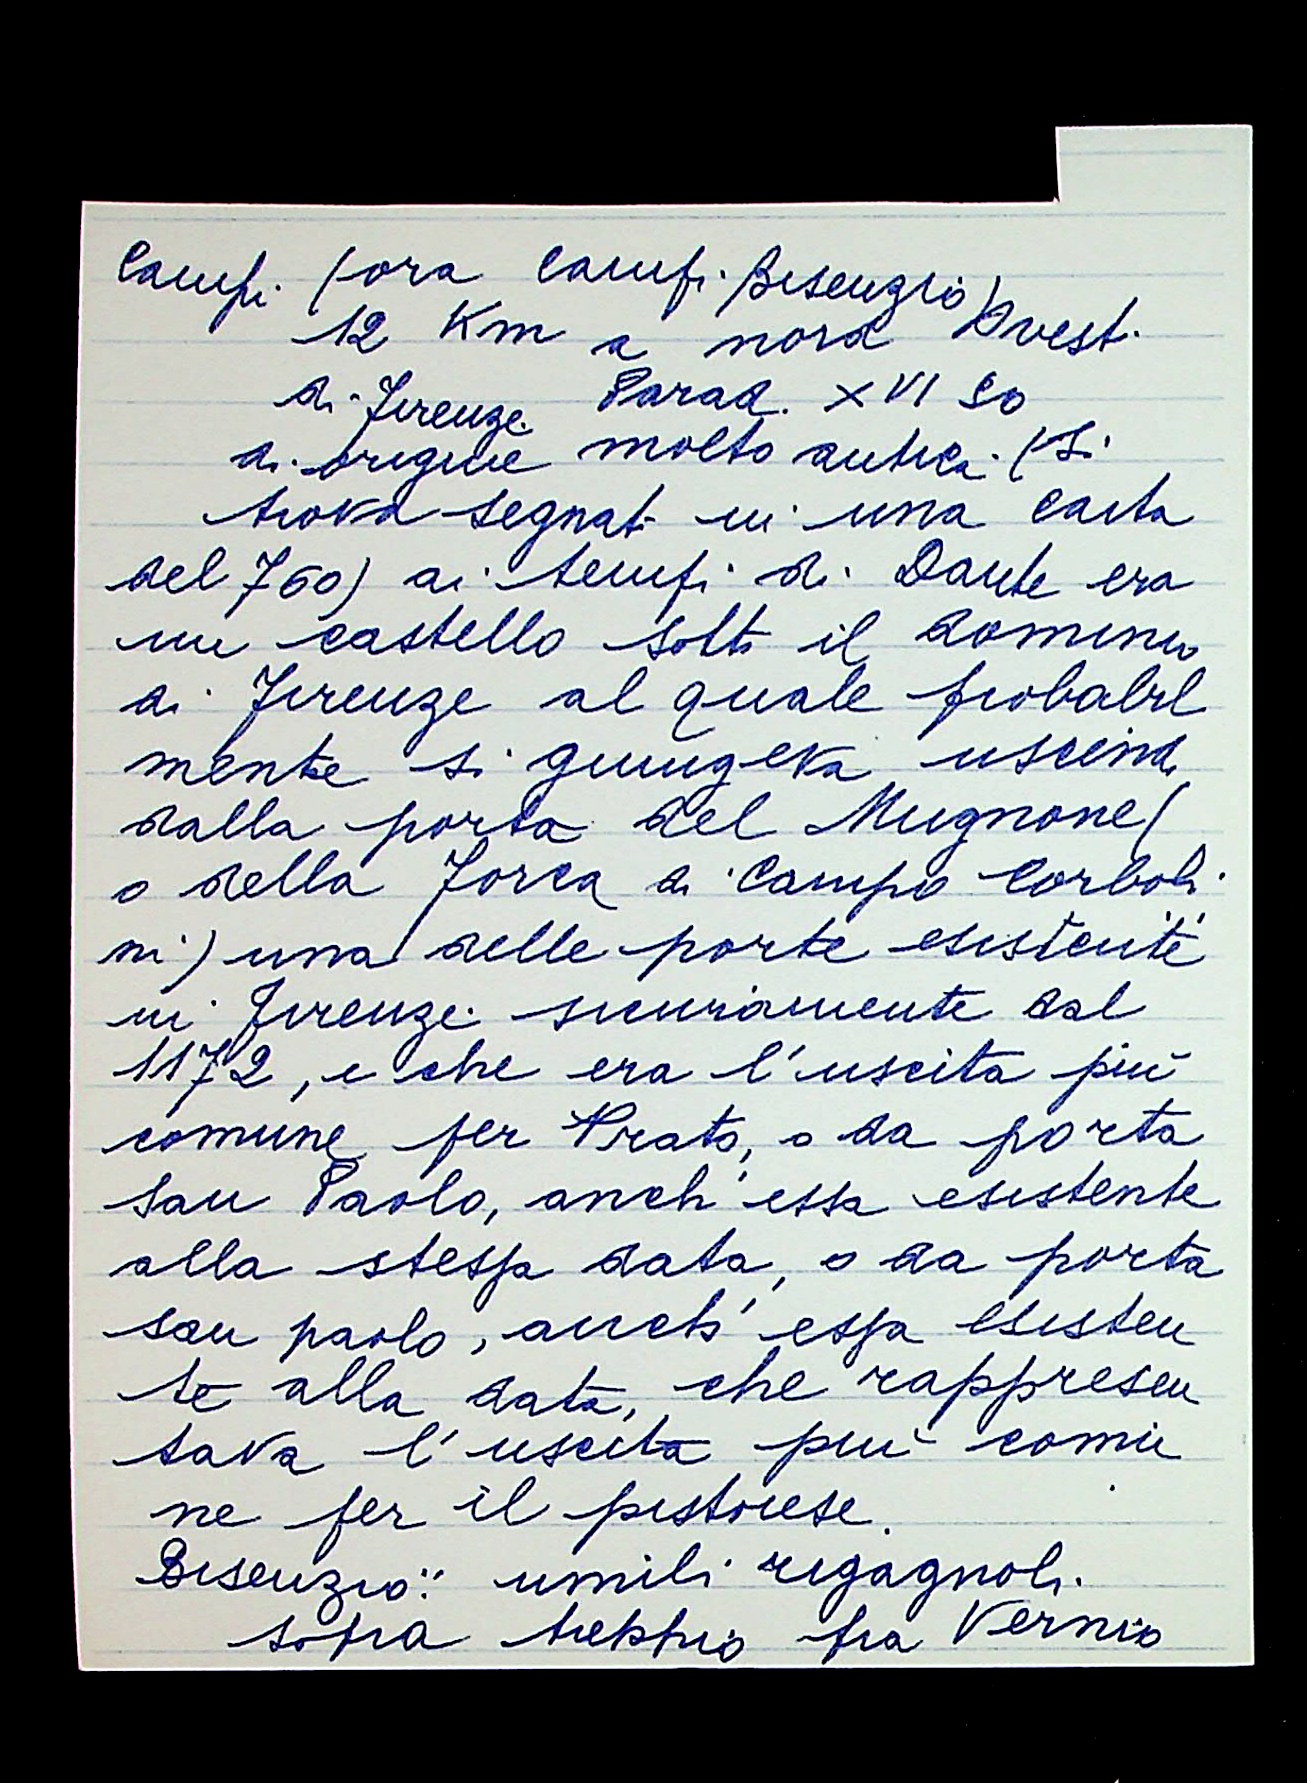 Campi (ora Campi Bisenzio)
12 Km a nord Ovest
di Firenze Parad. XVI 50
di origine molto antica (si
trova segnat in una carta
del 760) ai tempi di Dante era
un castello sotto il dominio
di Firenze al quale probabil
mente si giungeva uscend
dalla porta del Mugnone (
o della Forca di Campo Corboli
ni) una delle porte esistenti
in Firenze sicuramente dal
1172, e che era l'uscita più
comune per Prato, o da porta
San Paolo, anch'essa esistente
alla stessa data, o da porta
san paolo, anch'essa esisten
te alla data, che rappresen
tava l'uscita più comu
ne per il pistoiese.
Bisenzio: umili rigagnoli
sopra treppio fra Vernio